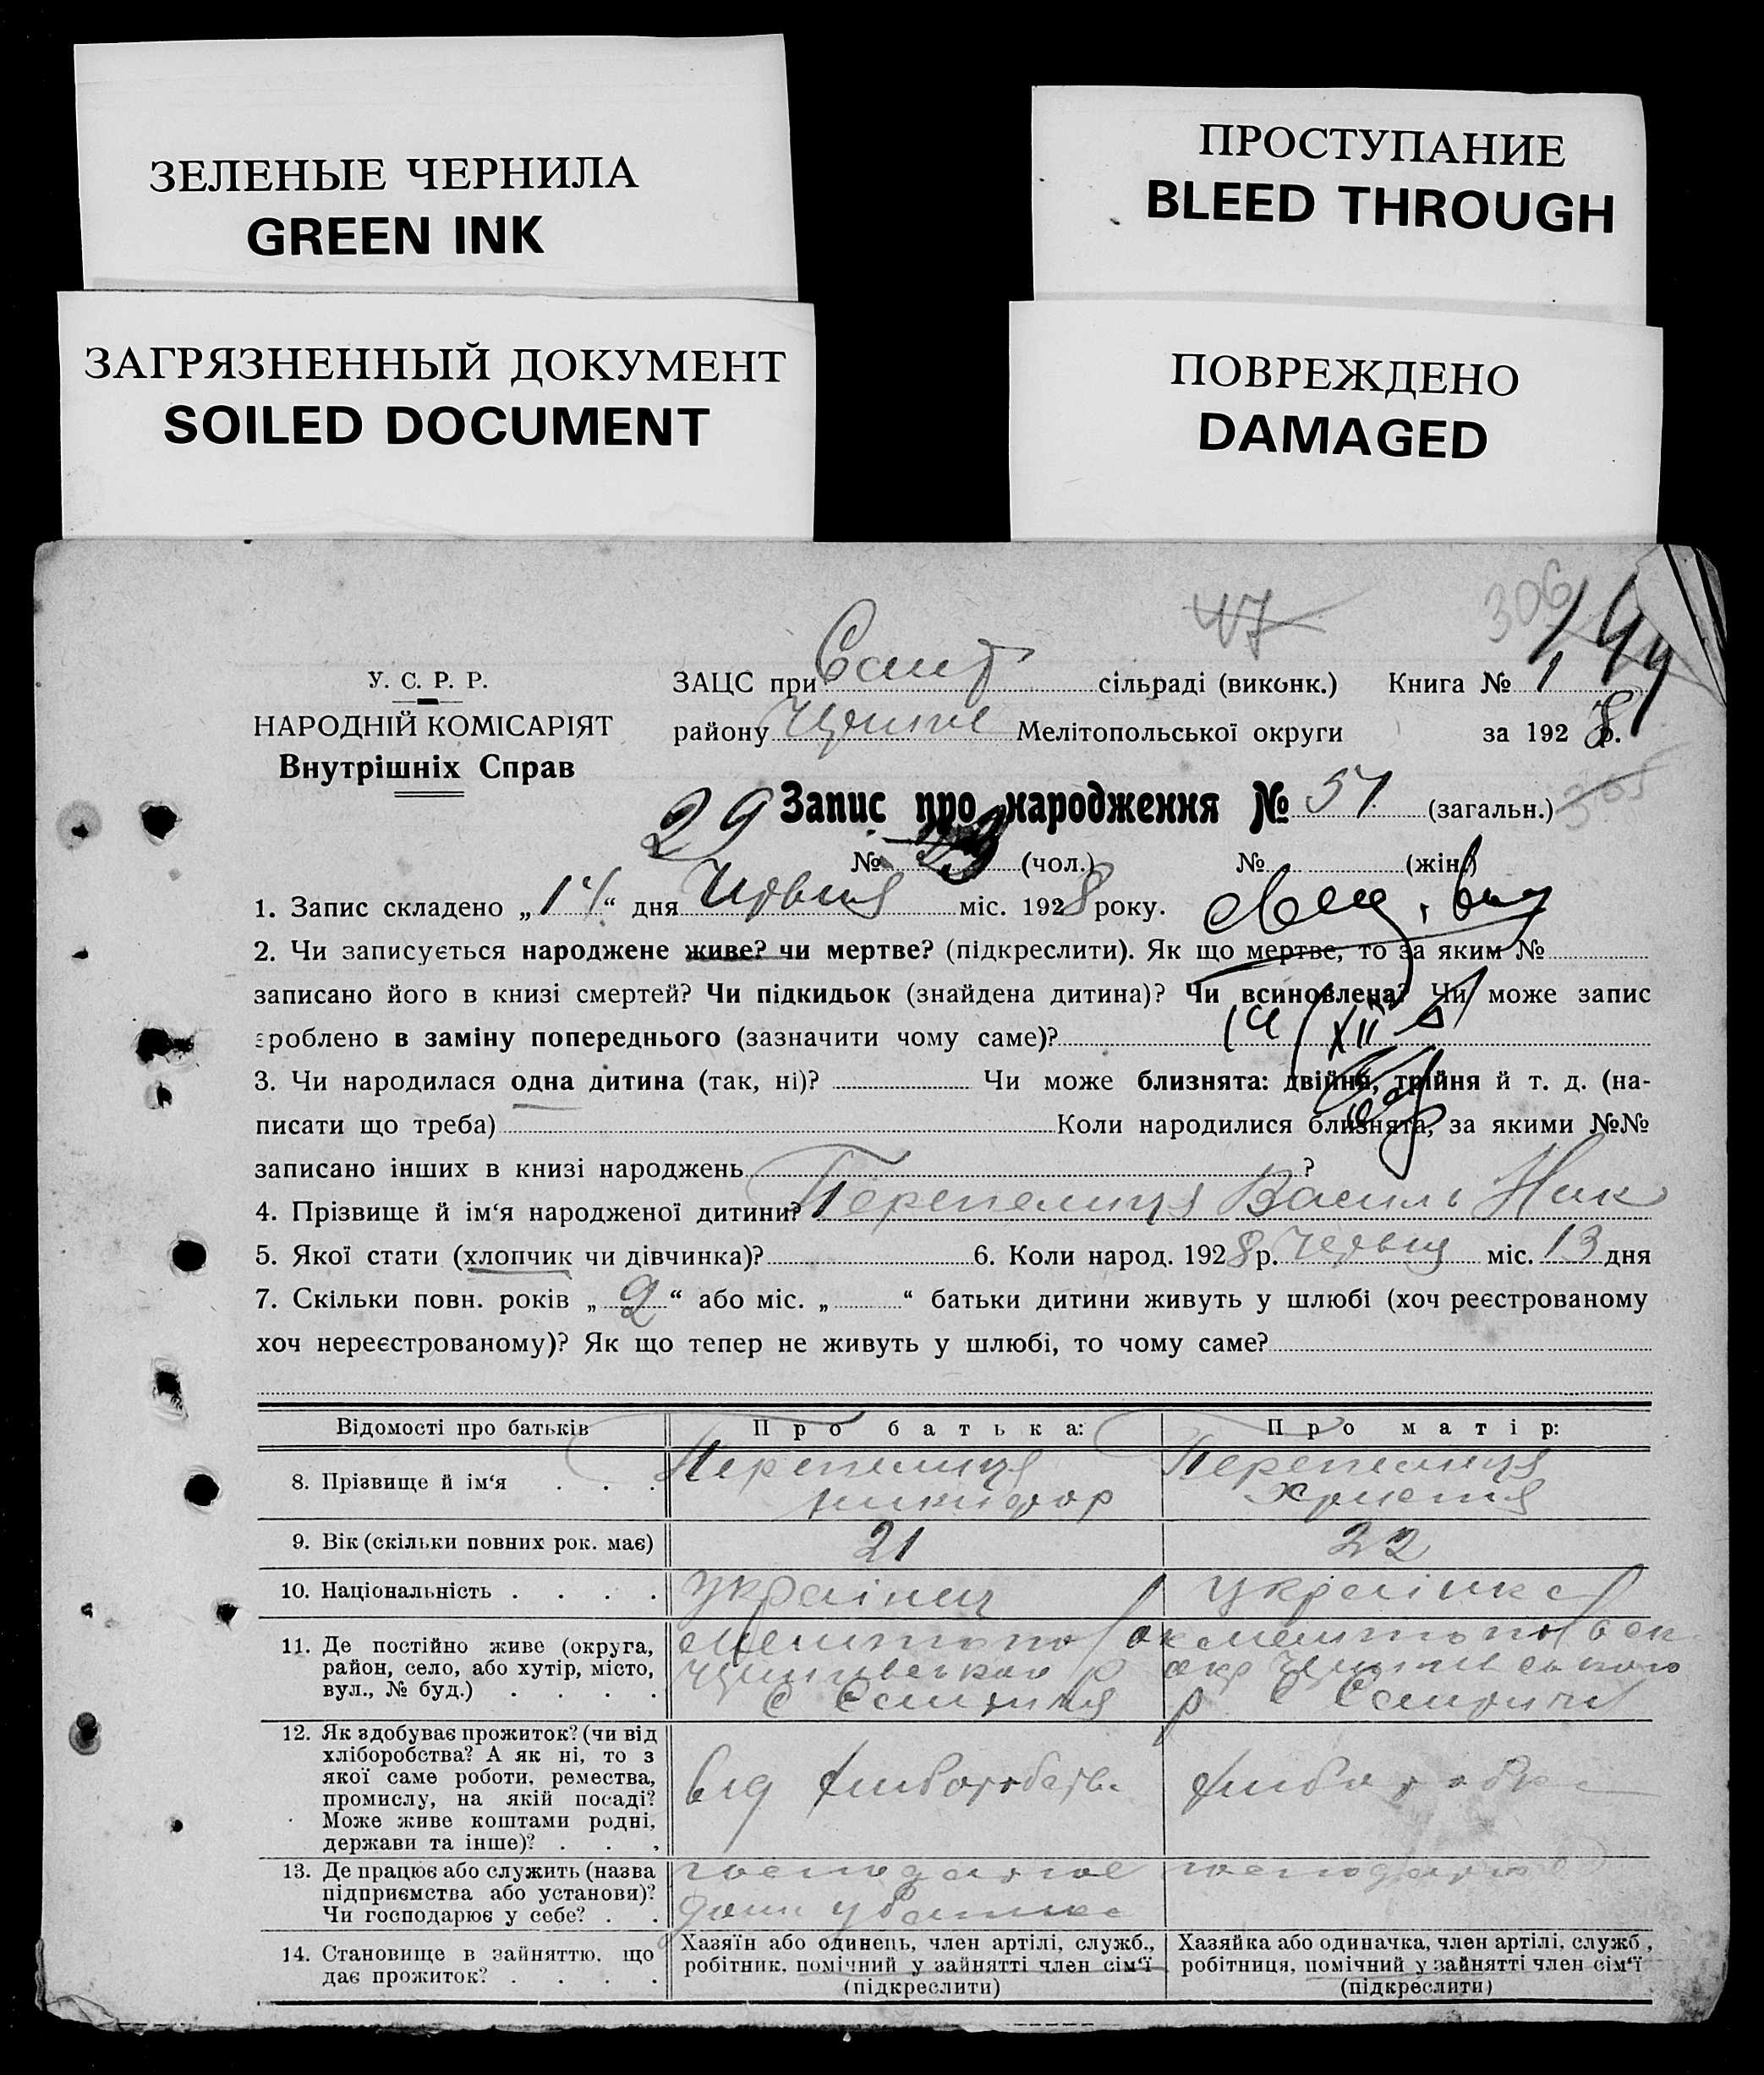 ЗЕЛЕНЫЕ ЧЕРНИЛА
GREEN INK
ПРОСТУПАНИЕ
BLEED THROUGH
ЗАГРЯЗНЕННЫЙ ДОКУМЕНТ
SOILED DOCUMENT
ПОВРЕЖДЕНО
DAMAGED
47
306
У. С. Р. Р.
НАРОДНІЙ КОМІСАРІЯТ
Внутрішніх Справ
ЗАЦС при сільраді (виконк.) Книга № 1
району Мелітопольської округи за 1928 р.
29 Запис про народження № 57 (загальн.) 305
№ (чол.) № (жін.)
1. Запис складено „14“ дня Червня міс. 1928 року.
2. Чи записується народжене живе? чи мертве? (підкреслити). Як що мертве, то за яким №
записано його в книзі смертей? Чи підкидьок (знайдена дитина)? Чи всиновлена? Чи може запис
зроблено в заміну попереднього (зазначити чому саме)?
3. Чи народилася одна дитина (так, ні)? Чи може близнята: двійня, трійня й т. д. (на-
писати що треба) Коли народилися близнята, за якими №№
записано інших в книзі народжень ?
4. Прізвище й ім‘я народженої дитини? Перепелиця Василь Ник
5. Якої стати (хлопчик чи дівчинка)? 6. Коли народ. 1928 р. Червня міс. 13 дня
7. Скільки повн. років „ 2 “ або міс. „ “ батьки дитини живуть у шлюбі (хоч реєстрованому
хоч нереєстрованому)? Як що тепер не живуть у шлюбі, то чому саме?
Відомості про батьків Про батька: Про матір:
8. Прізвище й ім‘я Перепелиця Перепелиця
Никифор Христя
9. Вік (скільки повних рок. має) 21 22
10. Національність Українец Українка
11. Де постійно живе (округа,
район, село, або хутір, місто,
вул., № буд.)
12. Як здобуває прожиток? (чи від
хліборобства? А як ні, то з
якої саме роботи, ремества,
промислу, на якій посаді?
Може живе коштами родні,
держави та інше)?
від хліборобства
13. Де працює або служить (назва
підприємства або установи)?
Чи господарює у себе?
14. Становище в зайняттю, що
дає прожиток?
Хазяїн або одинець, член артілі, служб.,
робітник, помічний у зайнятті член сім‘ї
(підкреслити)
Хазяйка або одиначка, член артілі, служб,
робітниця, помічний у зайнятті член сім‘ї
(підкреслити)